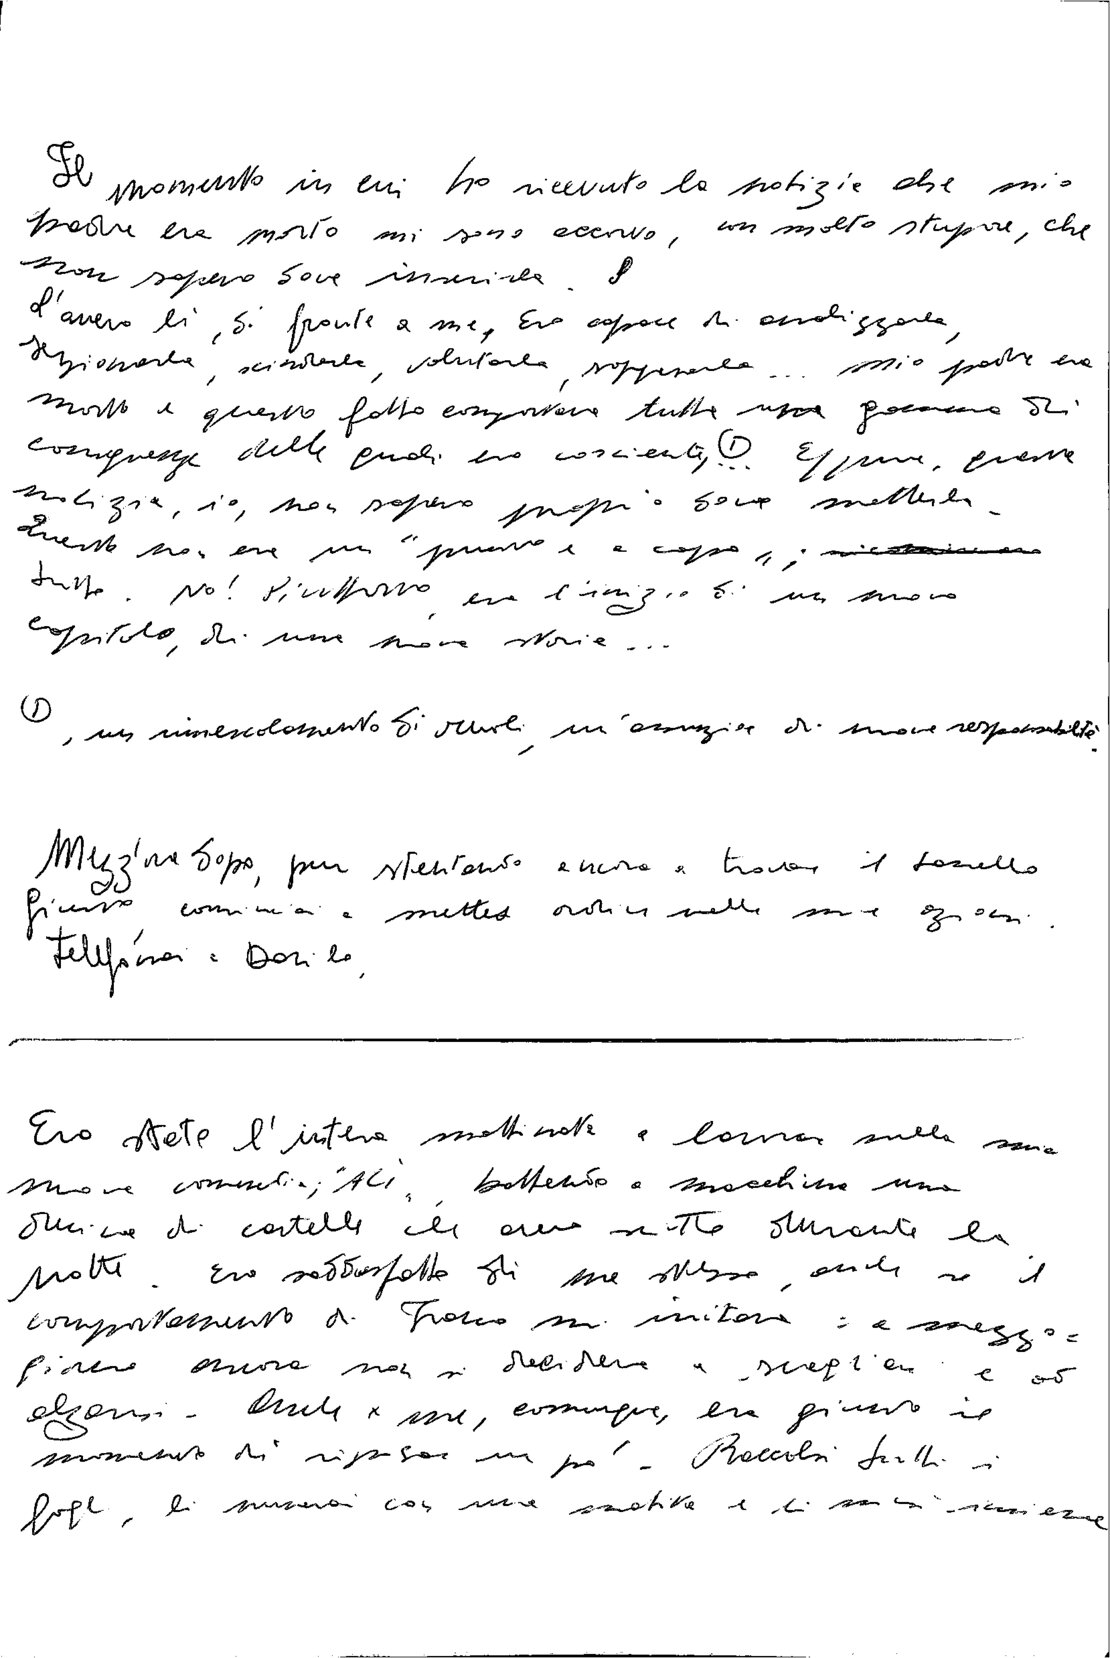 Il momento in cui ho ricevuto la notizia che mio
padre era morto mi sono accorso, con molto stupore, che
non sapevo dove inserirla.
L'avevo lì, di fronte a me, ero capace di analizzarla,
sezionarla, scinderla, valutarla, soppesarla... mio padre era
morto e questo fatto comportava tutta una gamma di
conseguenze delle quali ero cosciente, ① ... Eppure, questa
notizia, io, non sapevo proprio dove metterla.
Questo non era un "punto e a capo";
tutto. No! Piuttosto, era l'inizio di un nuovo
capitolo, di una nuova storia...
① , un rimescolamento di ruoli, un'assunzione di nuove responsabilità.
Mezz'ora dopo, pur stentando ancora a trovare il tassello
giusto, cominciai a mettere ordine nelle mie azioni.
Telefonai a Danilo,
Ero stata l'intera mattinata a lavorare sulla mia
nuova commedia; "Alì", battendo a macchina una
decina di cartelle che avevo scritto durante la
notte. Ero soddisfatta di me stessa, anche se il
comportamento di Franco mi irritava: a mezzo=
giorno ancora non si decideva a svegliarsi e ad
alzarsi. Anche x me, comunque, era giunto il
momento di riposare un po'. Raccolsi tutti i
fogli, li numerai con una matita e li misi insieme